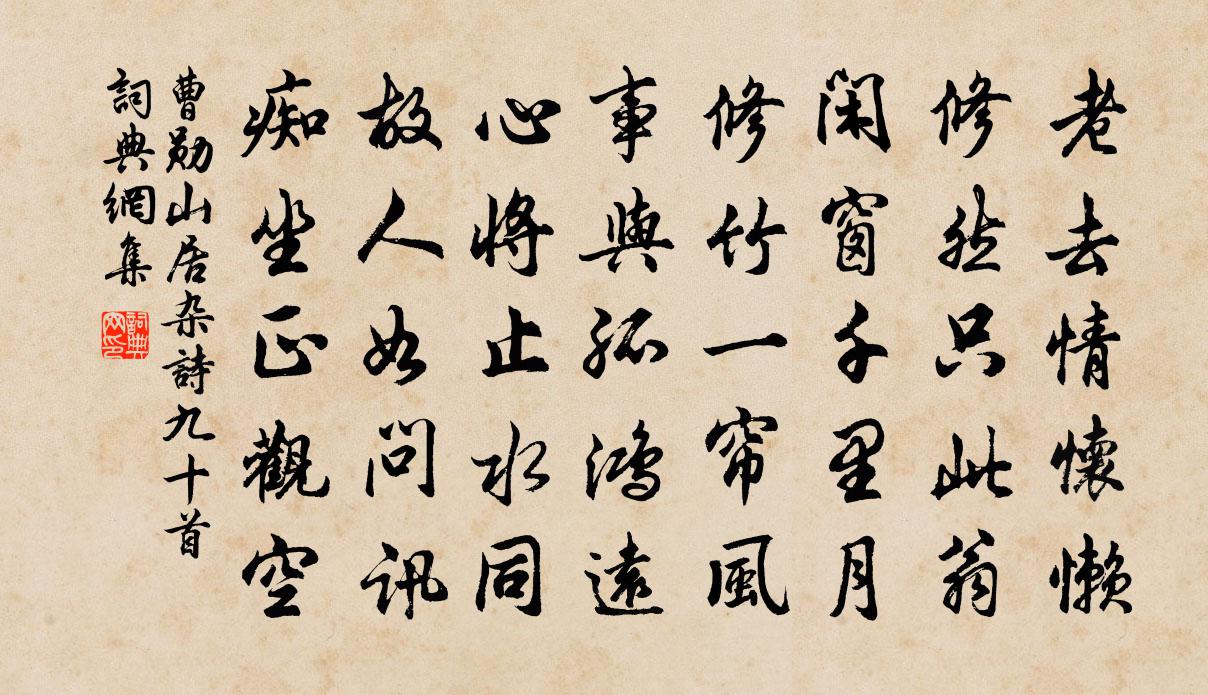 老去情懷懶
修然只此翁
閑窗千里月
修竹一帘風
事與孤鴻遠
心將止水同
故人如問訊
痴坐正觀空
曹勛山居杂詩九十首
詞典網集
詞典网印